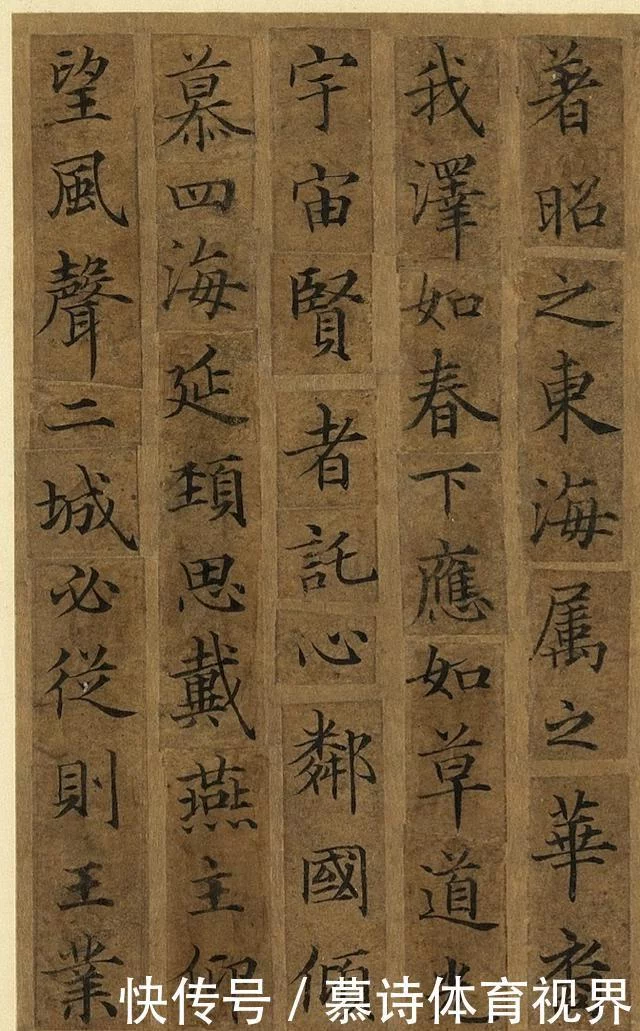 著昭之東海属之華裔
我澤如春下應如草道光
宇宙賢者託心鄰國傾
慕四海延頸思戴燕主仰
望風聲二城必從則王業
快传号 / 慕诗体育视界